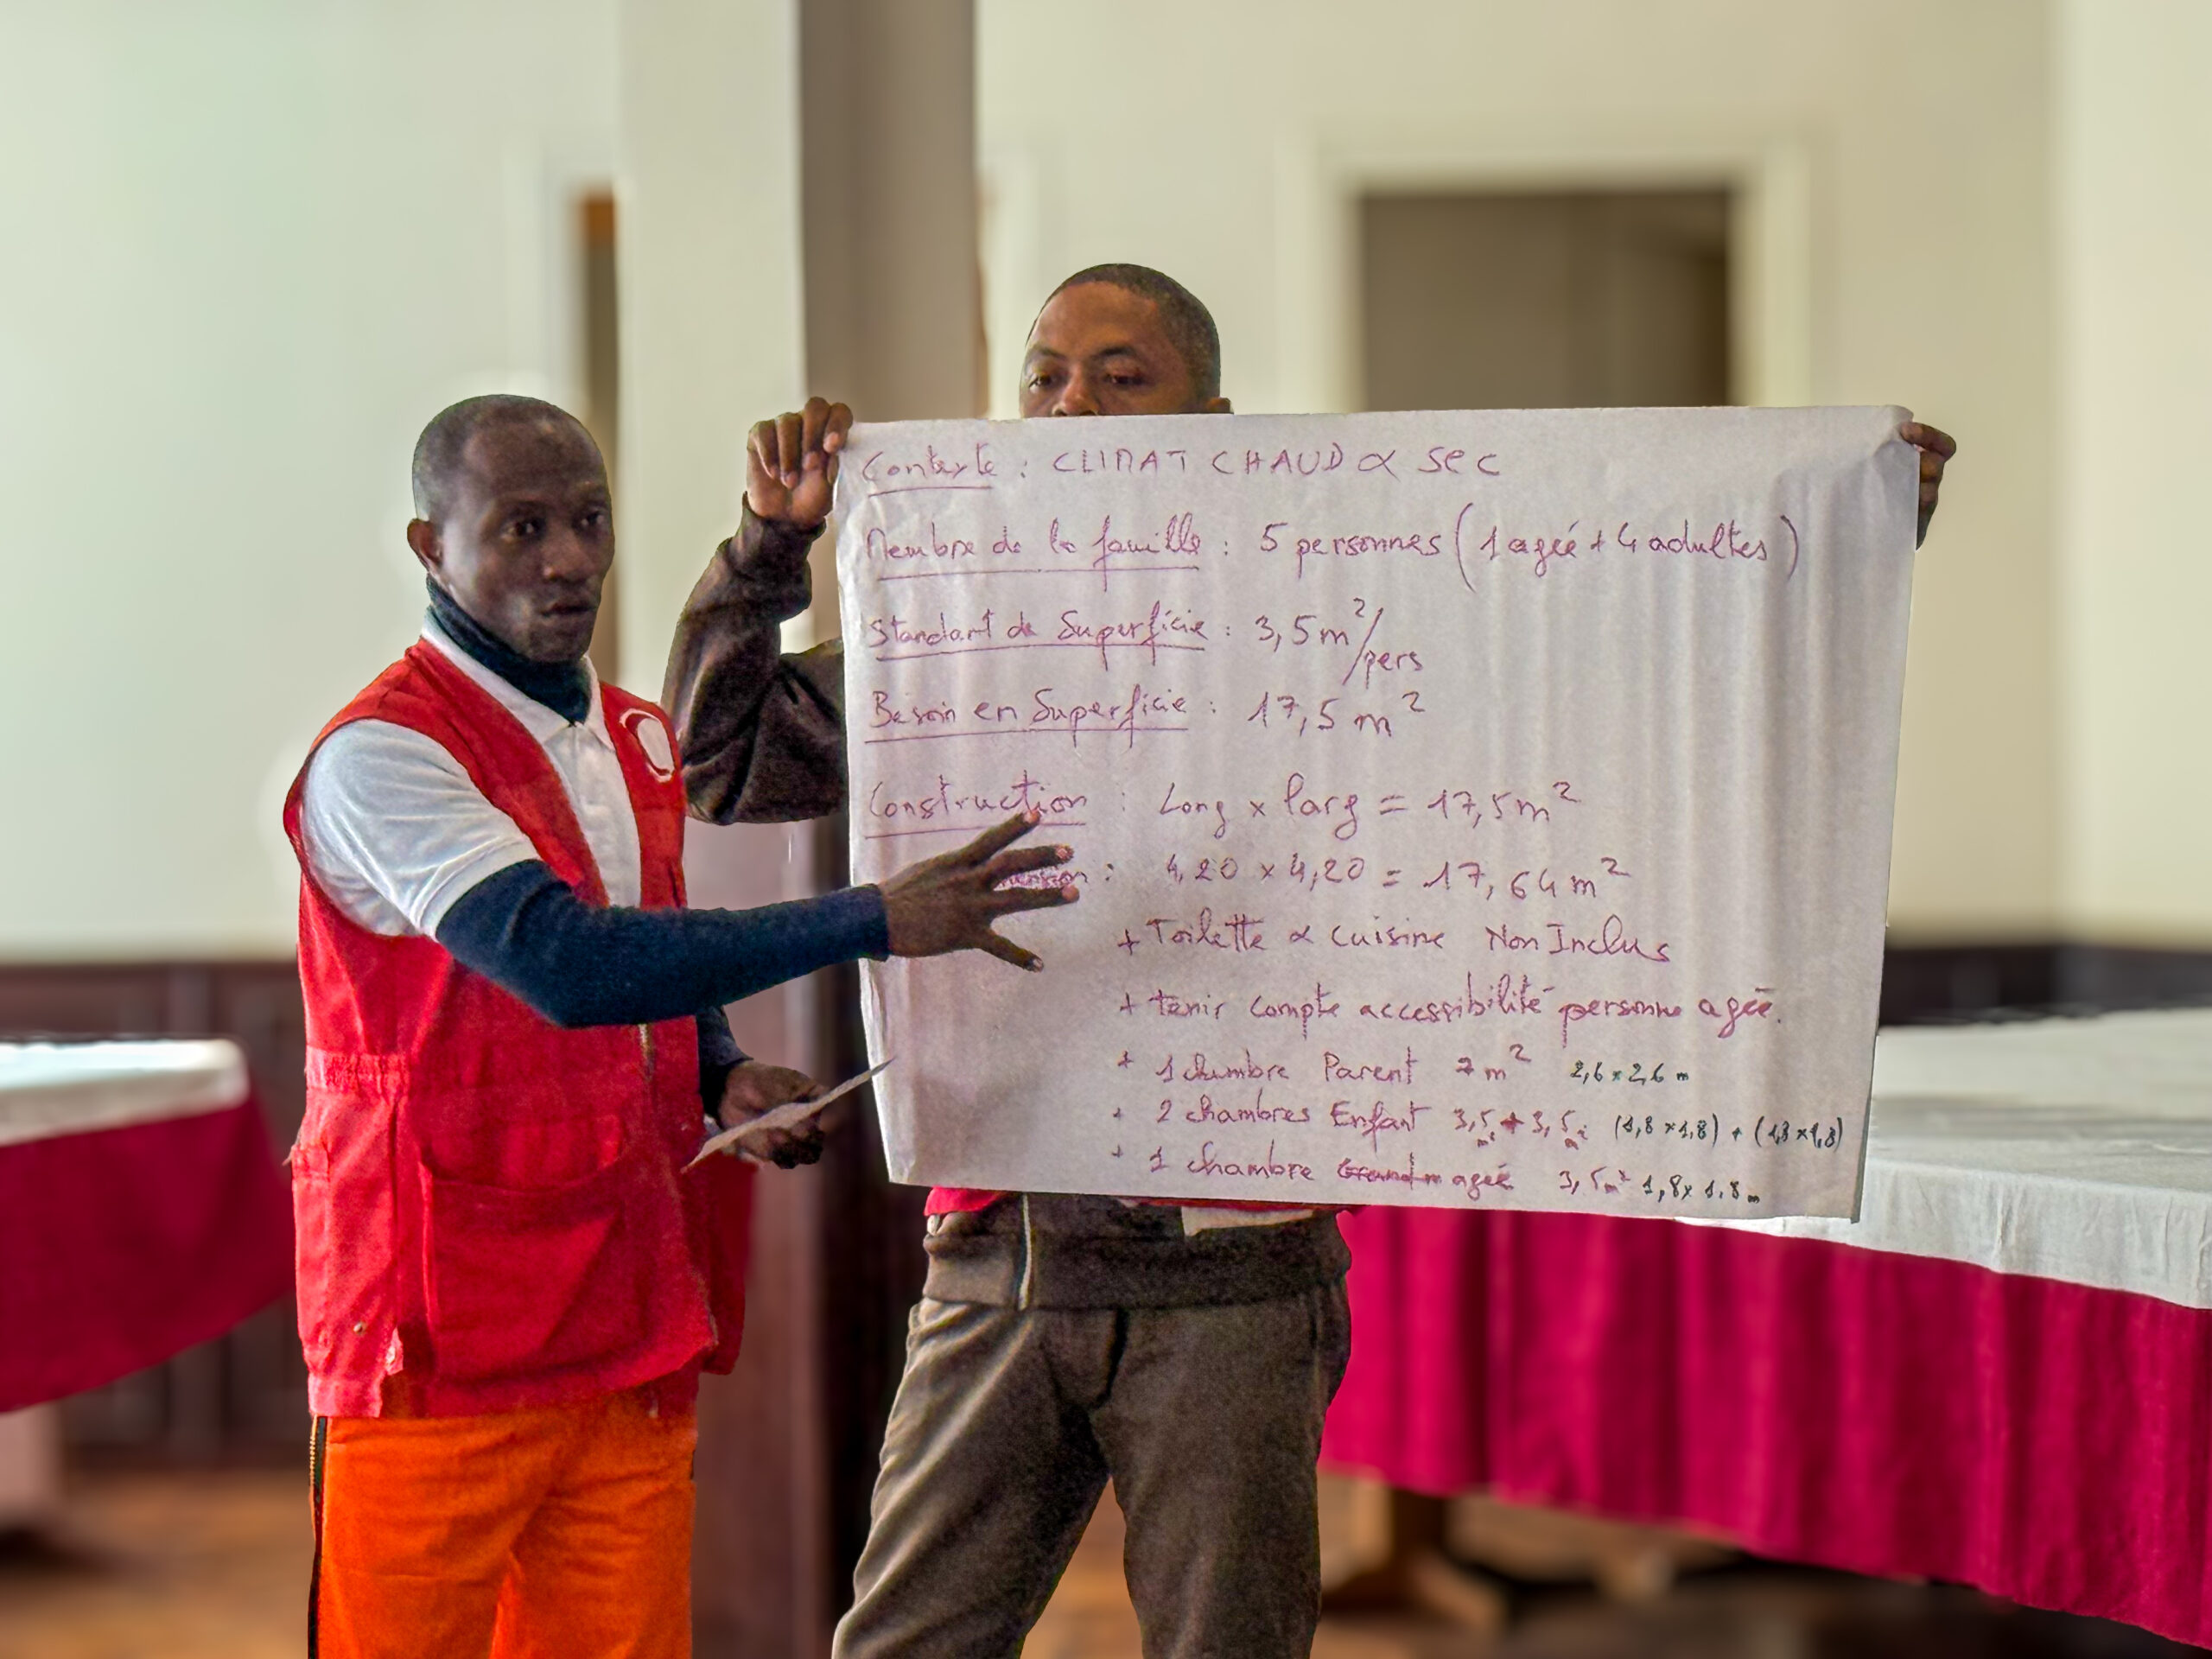 Contexte : CLIMAT CHAUD & SEC
Membre de la famille : 5 personnes (1 ageé + 4 adultes)
Standart de Superficie : 3,5 m²/pers
Besoin en Superficie : 17,5 m²
Construction : Long x larg = 17,5 m²
mension : 4,20 x 4,20 = 17,64 m²
+ Toilette & cuisine Non Inclus
+ tenir compte accessibilité personne ageé.
+ 1 chambre Parent 7 m² 2,6 x 2,6 m
+ 2 chambres Enfant 3,5 + 3,5 (1,8 x 1,8) + (1,8 x 1,8)
+ 1 chambre ageé 3,5 m² 1,8 x 1,8 m